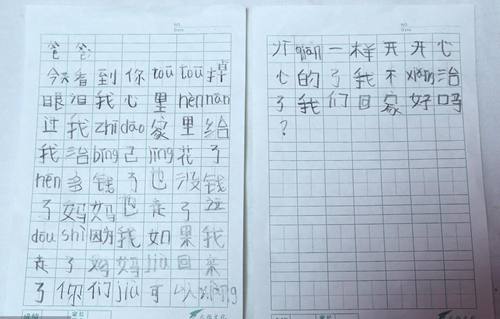 爸爸:
今天看到你tōu tōu掉
眼泪我心里hěn nán
过我zhī dào家里给
我治bìng已jīng花了
hěn多钱了也没钱
了妈妈也走了这
dōu shì因为我如果我
走了妈妈jiù回来
了你们jiù可以
qián一样开开心
心的了我不xiǎng治
了我们回家好吗
?